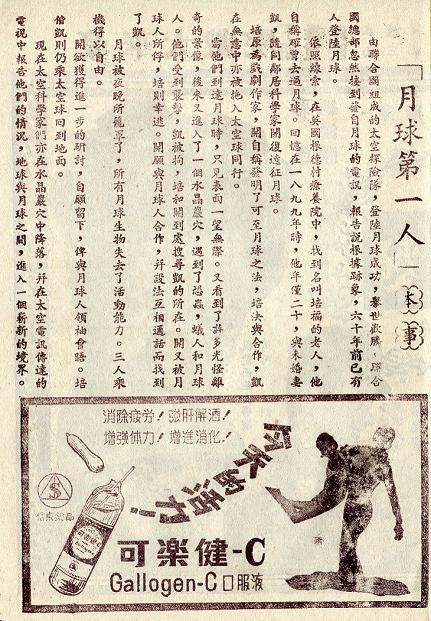 「月球第一人」本事
由聯合國組成的太空探險隊，登陸月球成功，舉世歡騰，聯合
國總部忽然接到發自月球的電訊，報告説根據跡象，六十年前已有
人登陸月球。
依照線索，在英國根德村療養院中，找到名叫培福的老人，他
自稱確曾去過月球。回憶在一八九九年時，他年僅二十，與未婚妻
凱，隨同鄰居科學家開復遠征月球。
培原爲戲劇作家，開自稱發明了可至月球之法，培決與合作，凱
在無意中亦被拖入太空球同行。
當他們到達月球時，只見表面一望無際。又看到了許多光怪離
奇的景像，後來又進入了一個水晶巖穴，遇到了恐蟲，蟻人和月球
人。他們受到襲擊，凱被拘，培和開到處搜尋凱的所在。開又被月
球人所俘，培則幸逃。開願與月球人合作，幷設法互相通話而找到
了凱。
月球被夜晚所籠罩了，所有月球生物失去了活動能力。三人乘
機得以自由。
開欲獲得進一步的研討，自願留下，俾與月球人領袖會晤。培
偕凱則仍乘太空球回到地面。
現在太空科學家們亦在水晶巖穴中降落，幷在太空電訊傳達的
電視中報告他們的情況，地球與月球之間，進入一個嶄新的境界。
消除疲労！強肝解酒！
增強体力！增進消化！
今天的活力！
S
信東藥品
可樂健-C
Gallogen-C 口服液